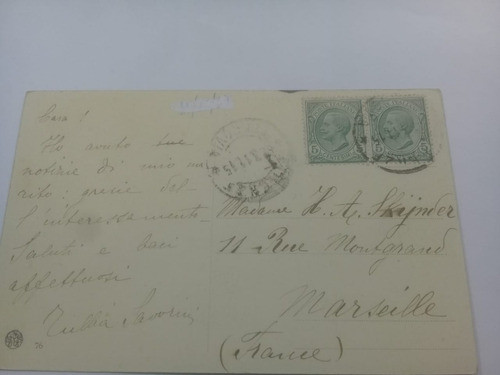 Cara!
Ho avuto due
notizie di mio ma
rito: grazie del-
l'interessamento
Saluti e baci
affettuosi
Savorini
76
5 5
Madame H. A.
11 Rue Montgrand
Marseille
(France)